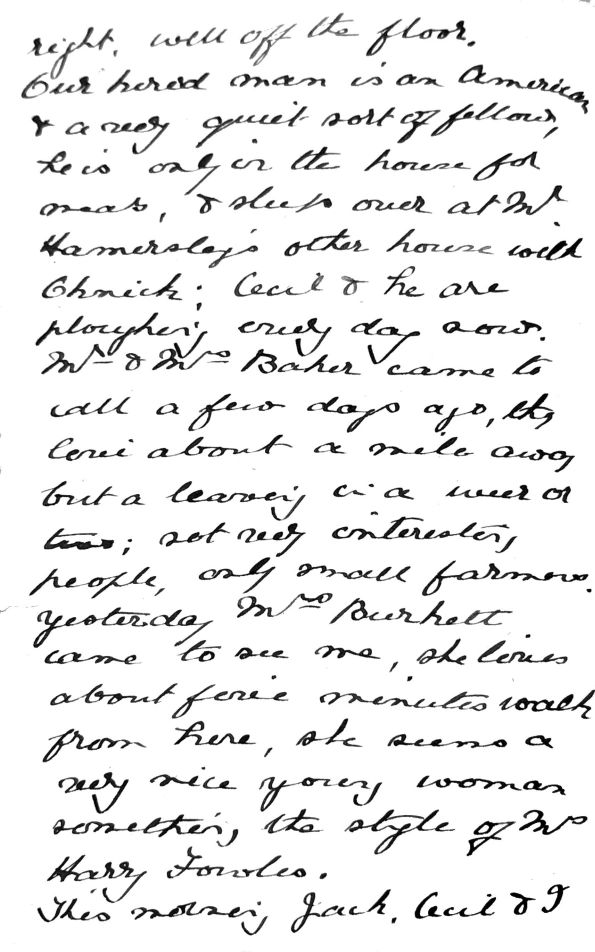 right, well off the floor.
Our hired man is an American
& a very quiet sort of fellow,
he is only in the house for
meals, & sleeps over at Mr
Hamersley's other house with
Chnick; Cecil & he are
ploughing every day now.
Mr & Mrs Baker came to
call a few days ago, they
live about a mile away
but a leaving in a week or
two; not very interesting
people, only small farmers.
Yesterday Mrs Burkett
came to see me, she lives
about five minutes walk
from here, she seems a
very nice young woman
something the style of Mrs
Harry Fowles.
This morning Jack, Cecil & I